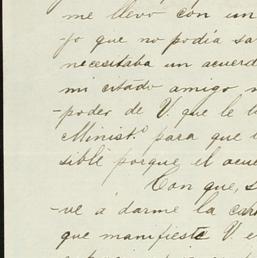 me llevó con un
jo que no podía sa
necesitaba un acuerd
mi citado amigo n
-poder de V. que le t
Minist.º para que
sible porque el acue
Con que, s
-ve á darme la
que manifieste V. e